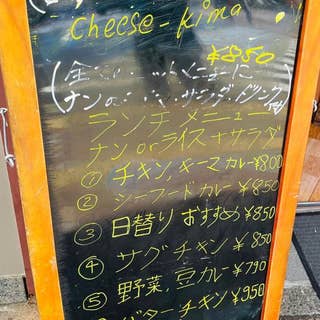 Cheese-Kima
¥850
ナン サラダ、ドリンク
ランチメニュー
ナン or ライス+サラダ
① チキン、キーマカレー ¥800
② シーフードカレー ¥850
③ 日替り おすすめ ¥850
④ サグチキン ¥850
⑤ 野菜、豆カレー ¥790
バターチキン ¥950